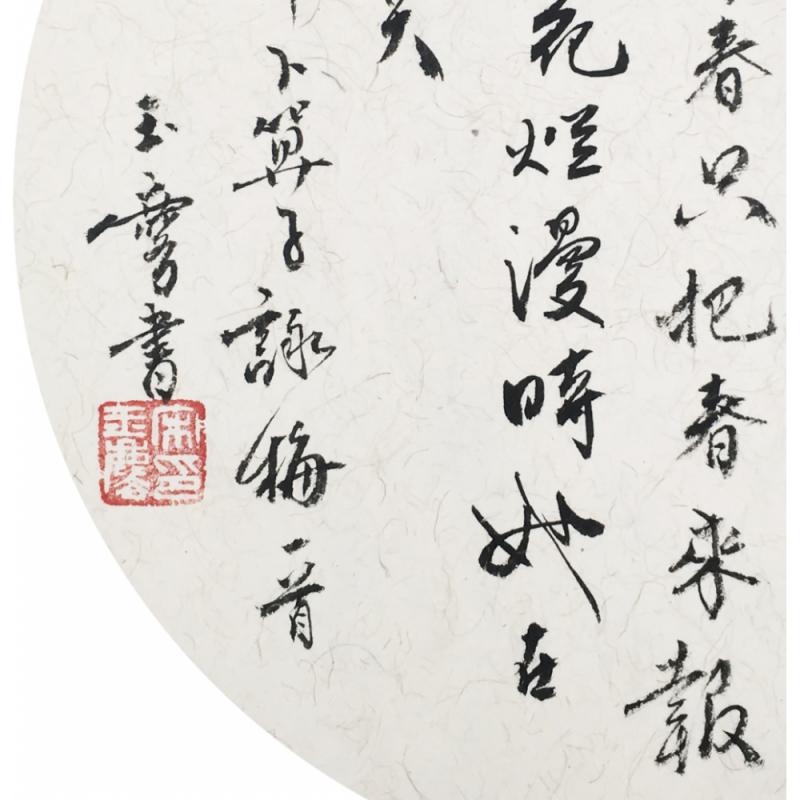 春只把春來報
花爛漫時她在
笑
卜算子詠梅一首
玉書